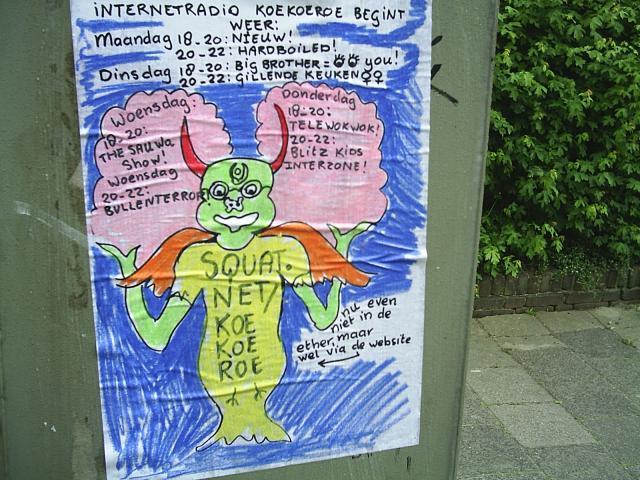 INTERNETRADIO KOEKOEROE BEGINT
WEER:
Maandag 18-20: NIEUW!
20-22: HARDBOILED!
Dinsdag 18-20: BIG BROTHER = you!
20-22: GILLENDE KEUKEN♀♀
Woensdag:
18-20:
THE SAUWA
Show!
Woensdag
20-22:
BULLENTERROR
Donderdag
18-20:
TELEWOKWOK!
20-22:
Blitz Kids
INTERZONE!
SQUAT.
NET/
KOE
KOE
ROE
nu even
niet in de
ether, maar
wel via de website